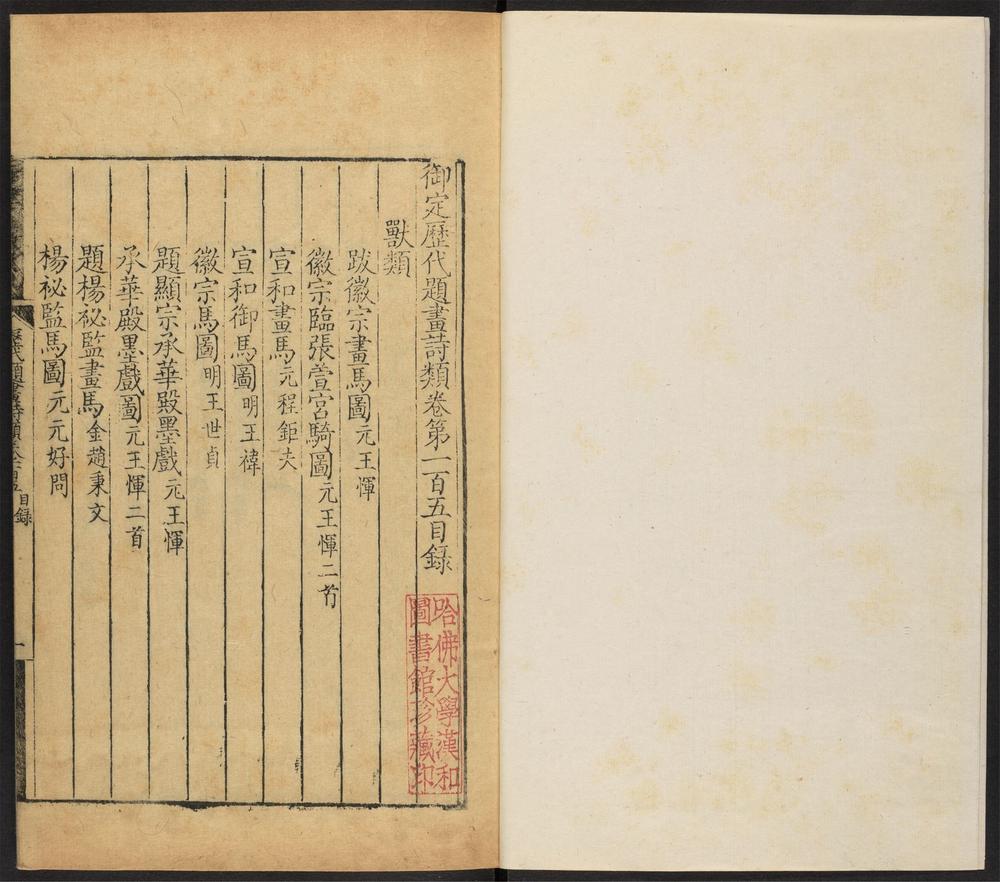 御定歷代題畫詩類卷第一百五目錄
獸類
跋徽宗畫馬圖 元王惲
徽宗臨張萱宮騎圖 元王惲二首
宣和畫馬 元程鉅夫
宣和御馬圖 明王褘
徽宗馬圖 明王世貞
題顯宗承華殿墨戲 元王惲
承華殿墨戲圖 元王惲二首
題楊祕監畫馬 金趙秉文
楊祕監馬圖 元元好問
目錄
一
哈佛大學漢和
圖書館珍藏印